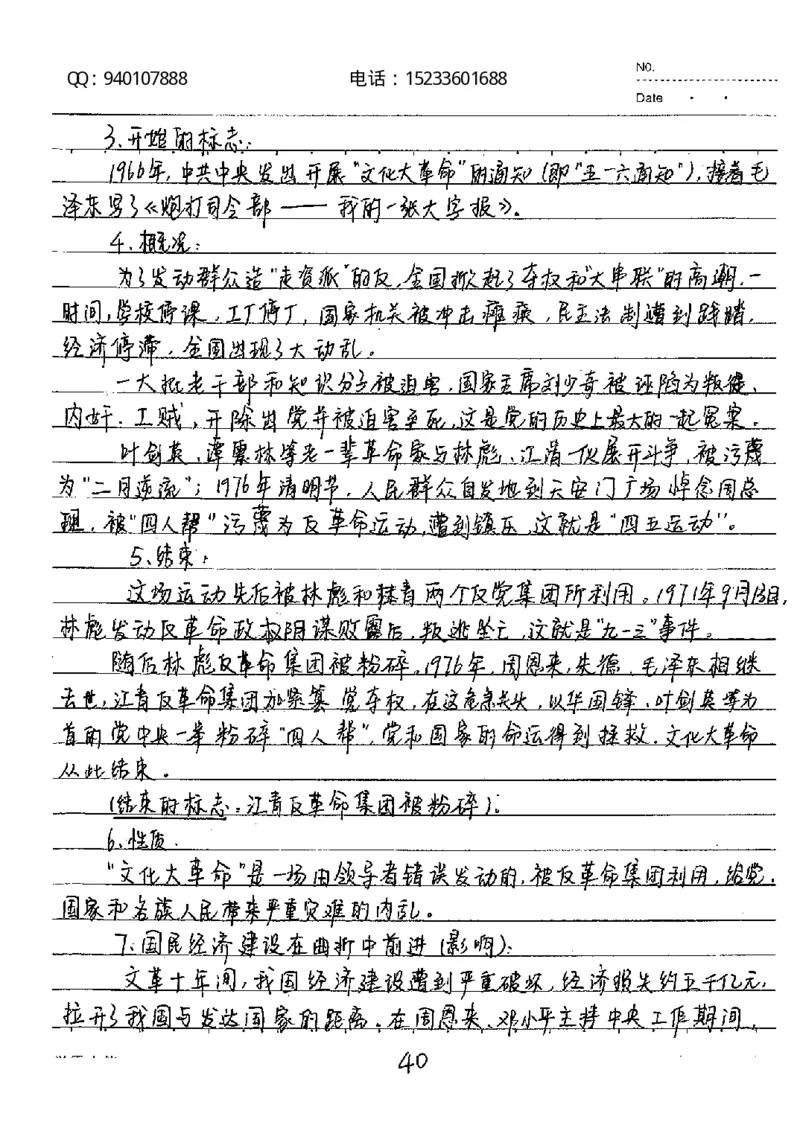 QQ：940107888 电话：15233601688 NO.
Date · ·
3、开始的标志：
1966年，中共中央发出开展"文化大革命"的通知（即"五一六通知"），接着毛
泽东写了《炮打司令部——我的一张大字报》。
4、概况：
为了发动群众造"走资派"的反，全国掀起了夺权和"大串联"的高潮，一
时间，学校停课，工厂停工，国家机关被冲击瘫痪，民主法制遭到践踏，
经济停滞，全国出现了大动乱。
一大批老干部和知识分子被迫害，国家主席刘少奇被诬陷为叛徒、
内奸、工贼，开除出党并被迫害至死，这是党的历史上最大的一起冤案。
叶剑英、谭震林等老一辈革命家与林彪、江清一伙展开斗争，被污蔑
为"二月逆流"；1976年清明节，人民群众自发地到天安门广场悼念周总
理，被"四人帮"污蔑为反革命运动，遭到镇压，这就是"四五运动"。
5、结束：
这场运动先后被林彪和江青两个反党集团所利用。1971年9月13日，
林彪发动反革命政权阴谋败露后，叛逃坠亡，这就是"九一三"事件。
随后林彪反革命集团被粉碎。1976年，周恩来，朱德、毛泽东相继
去世，江青反革命集团加紧篡党夺权，在这危急关头，以华国锋、叶剑英等为
首的党中央一举粉碎"四人帮"，党和国家的命运得到拯救，文化大革命
从此结束。
（结束的标志：江青反革命集团被粉碎）。
6、性质．
"文化大革命"是一场由领导者错误发动的，被反革命集团利用，给党，
国家和各族人民带来严重灾难的内乱。
7、国民经济建设在曲折中前进（影响）：
文革十年间，我国经济建设遭到严重破坏，经济损失约五千亿元，
拉开了我国与发达国家的距离。在周恩来、邓小平主持中央工作期间，
40